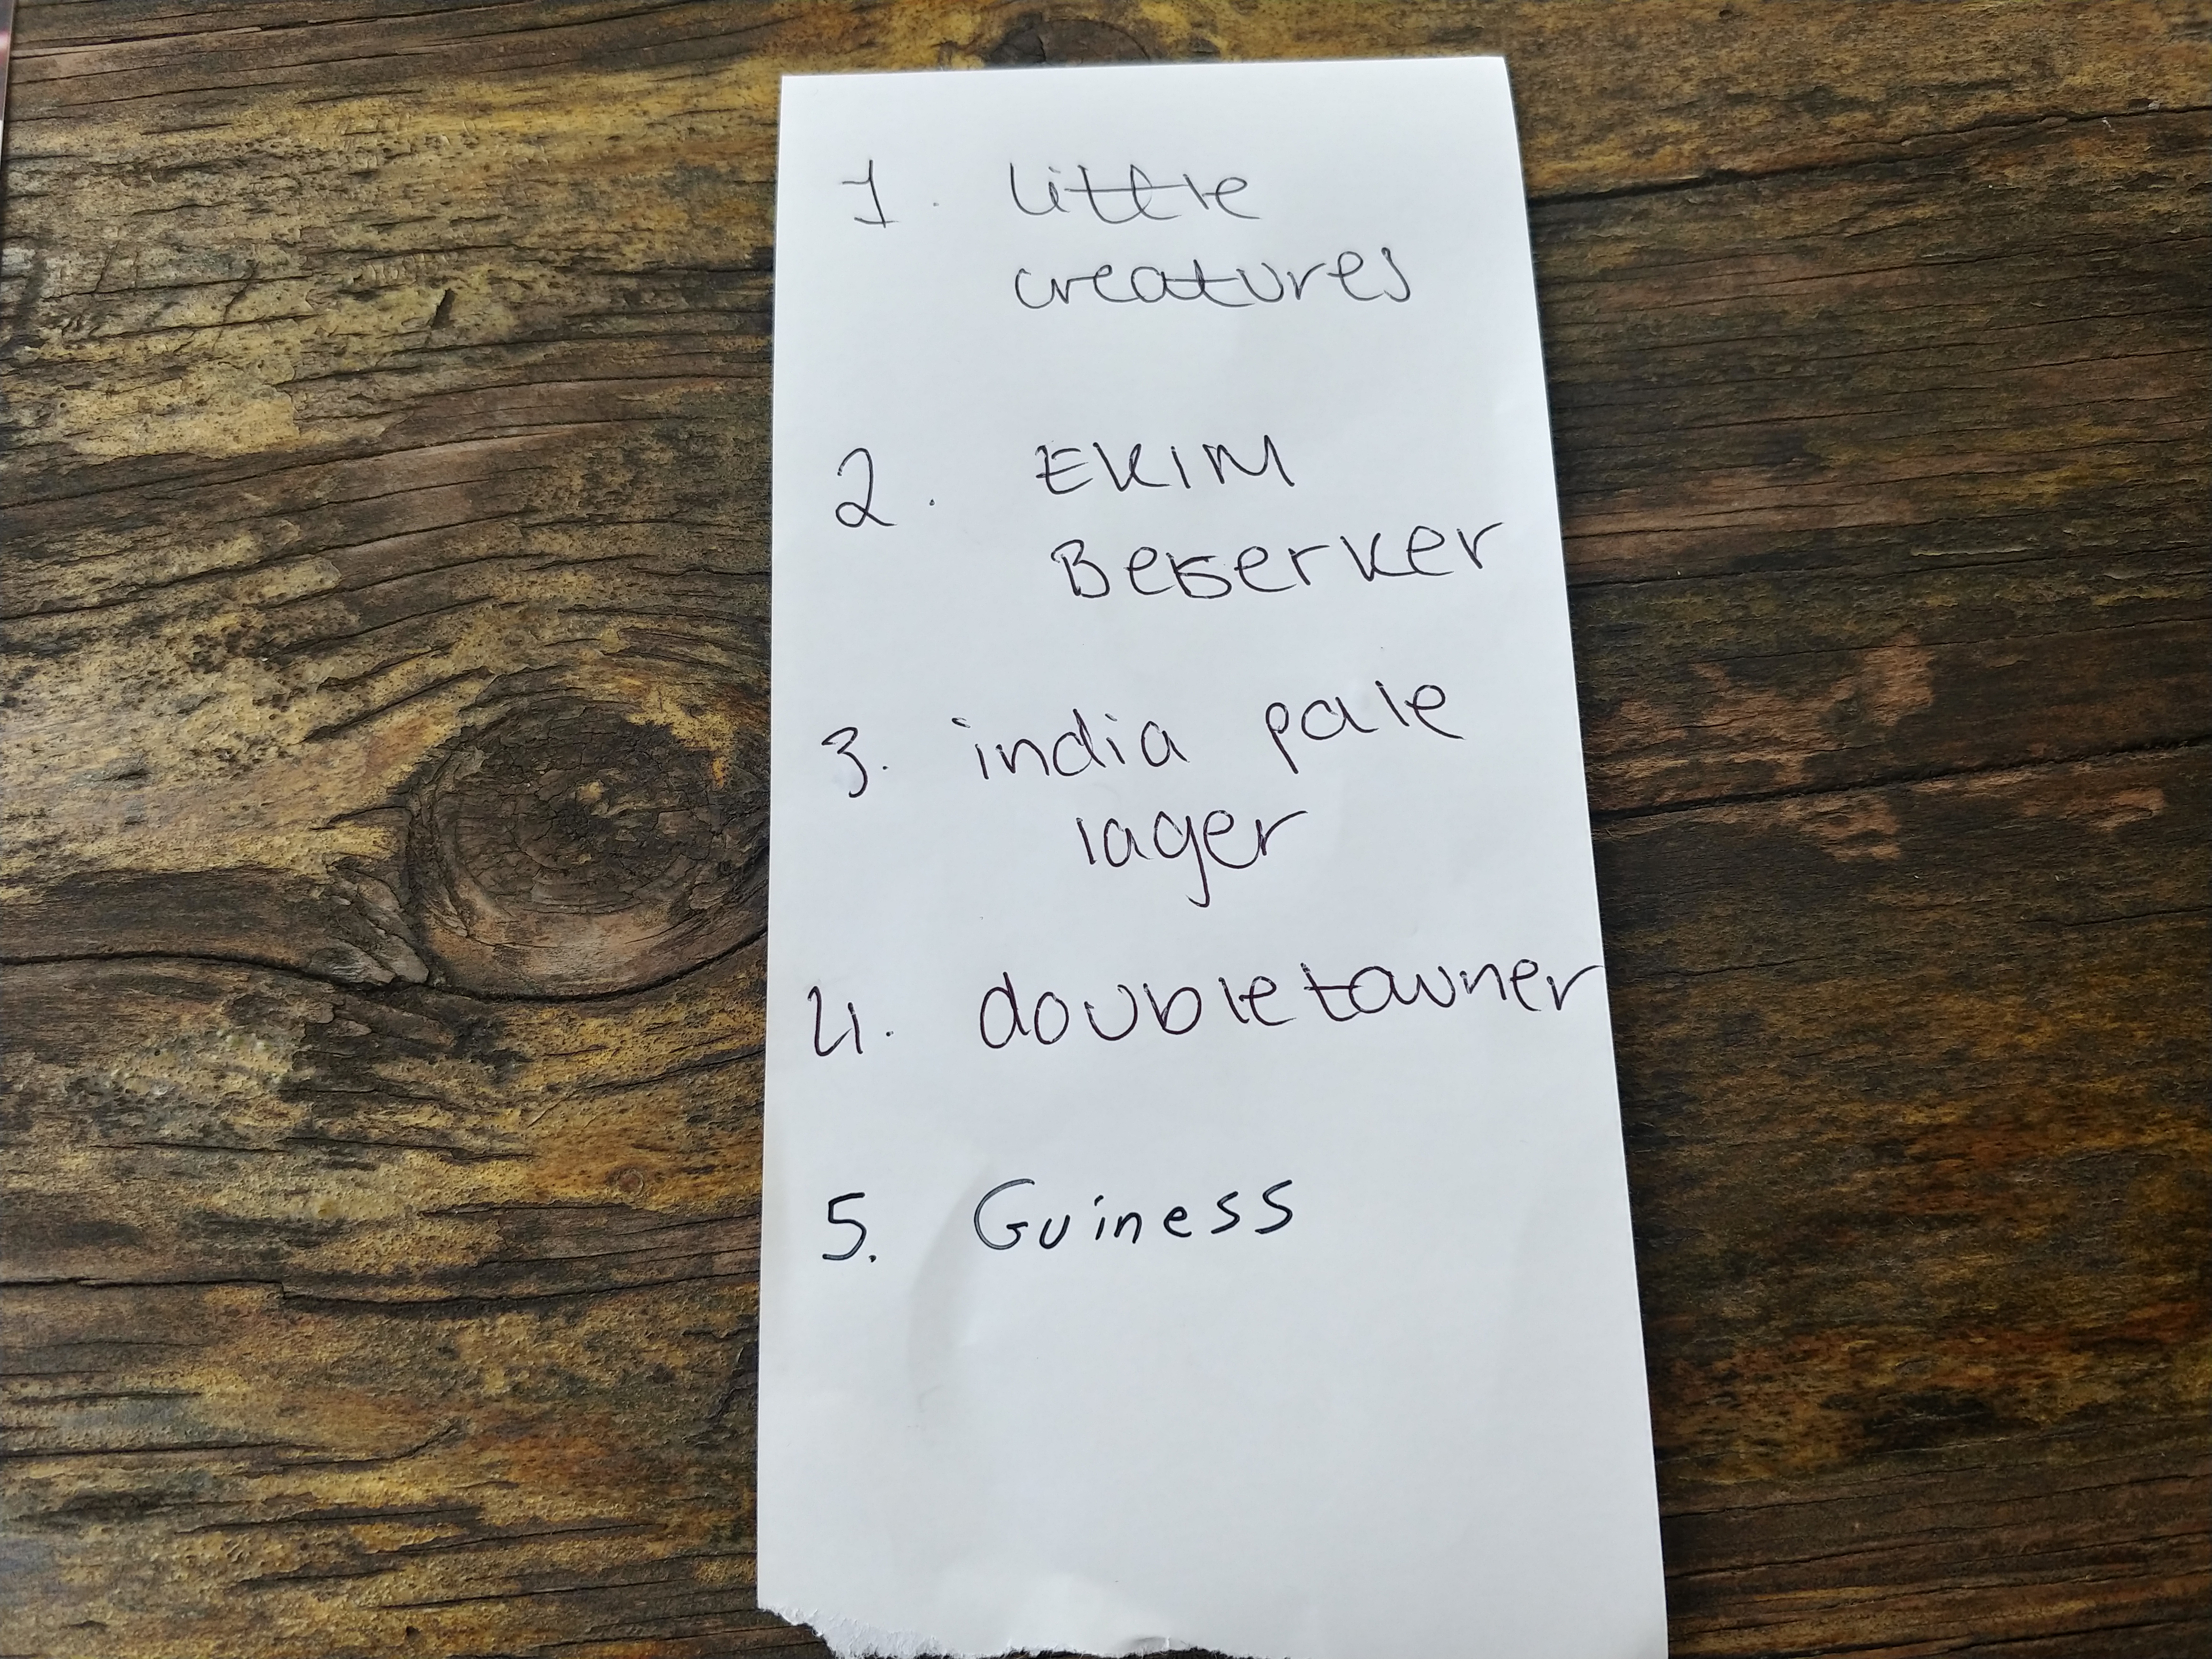 1. little
creatures
2. EKIM
Beserker
3. india pale
lager
4. doubletowner
5. Guiness